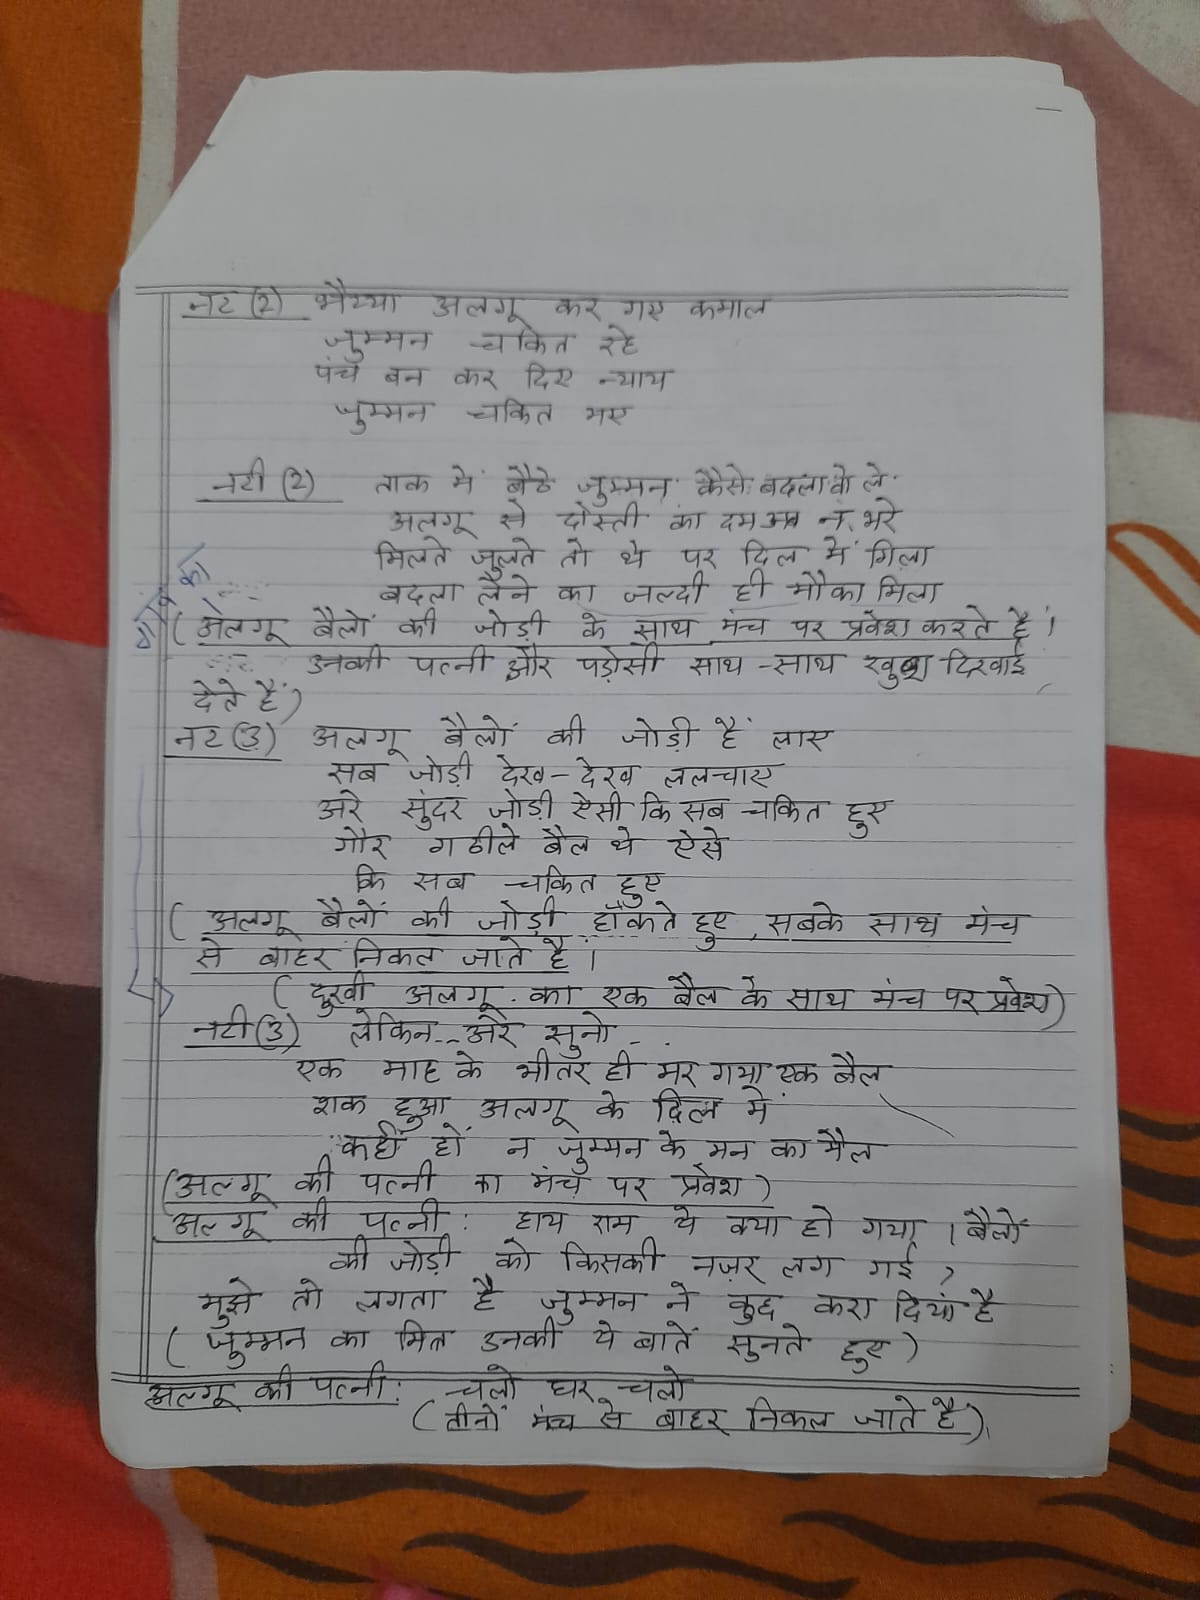 नट (2) भैय्या अलगू कर गए कमाल
जुम्मन चकित रहे
पंच बन कर दिए न्याय
जुम्मन चकित भए
नटी (2) ताक में बैठे जुम्मन कैसे बदला वो ले
अलगू से दोस्ती का दम अब न भरे
मिलते जुलते तो थे पर दिल में गिला
बदला लेने का जल्दी ही मौका मिला
(अलगू बैलों की जोड़ी के साथ मंच पर प्रवेश करते हैं।
उनकी पत्नी और पड़ोसी साथ-साथ खुश दिखाई
देते हैं)
नट (3) अलगू बैलों की जोड़ी हैं लाए
सब जोड़ी देख-देख ललचाए
अरे सुंदर जोड़ी ऐसी कि सब चकित हुए
गौर गठीले बैल थे ऐसे
कि सब चकित हुए
(अलगू बैलों की जोड़ी हाँकते हुए, सबके साथ मंच
से बाहर निकल जाते हैं।
(दुखी अलगू का एक बैल के साथ मंच पर प्रवेश)
नटी (3) लेकिन.. अरे सुनो..
एक माह के भीतर ही मर गया एक बैल
शक हुआ अलगू के दिल में
कहीं हों न जुम्मन के मन का मैल
(अलगू की पत्नी का मंच पर प्रवेश)
अलगू की पत्नी: हाय राम ये क्या हो गया। बैलों
की जोड़ी को किसकी नज़र लग गई,
मुझे तो लगता है जुम्मन ने कुछ करा दिया है
(जुम्मन का मित्र उनकी ये बातें सुनते हुए)
अलगू की पत्नी: चलो घर चलो
(तीनों मंच से बाहर निकल जाते हैं)